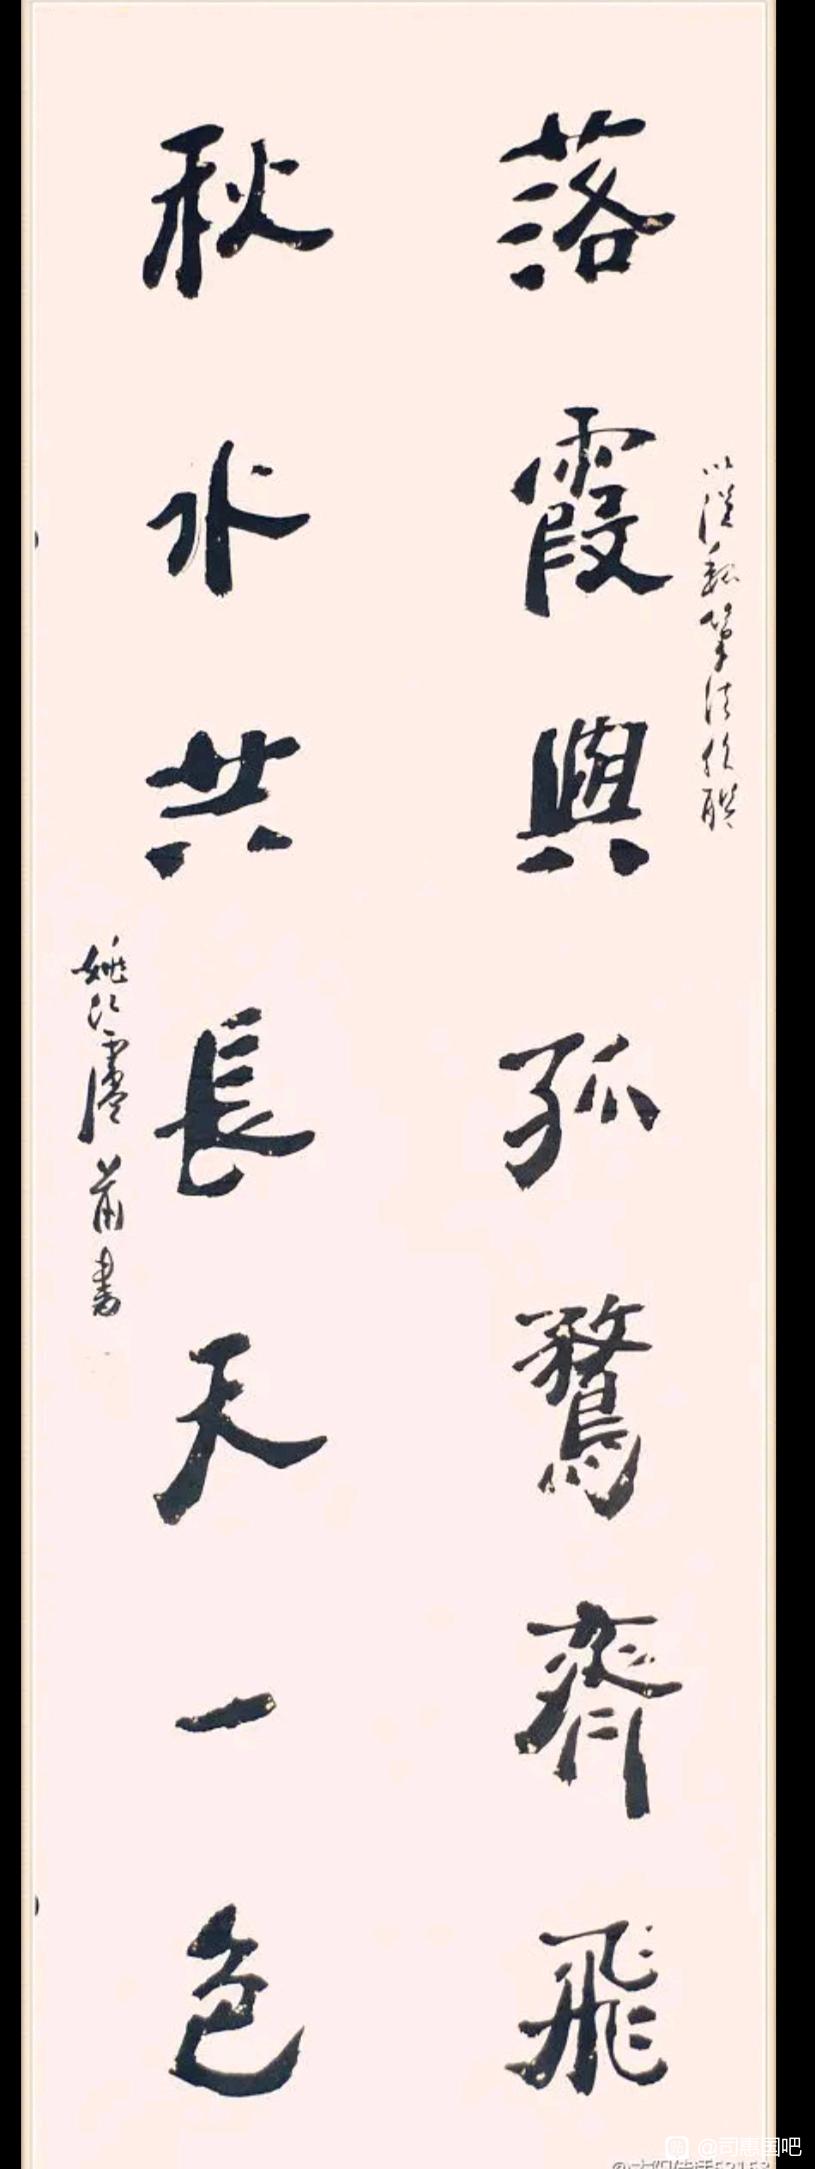 以漢魏筆法作聯
落霞與孤鶩齊飛
秋水共長天一色
書
@司惠国吧